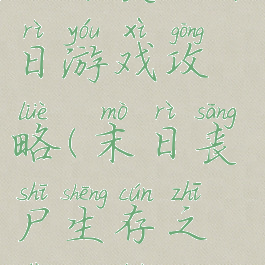 rì yóu xì gōng
日游戏攻
lüè mò rì sāng
略(末日丧
shī shēng cún zhī
尸生存之